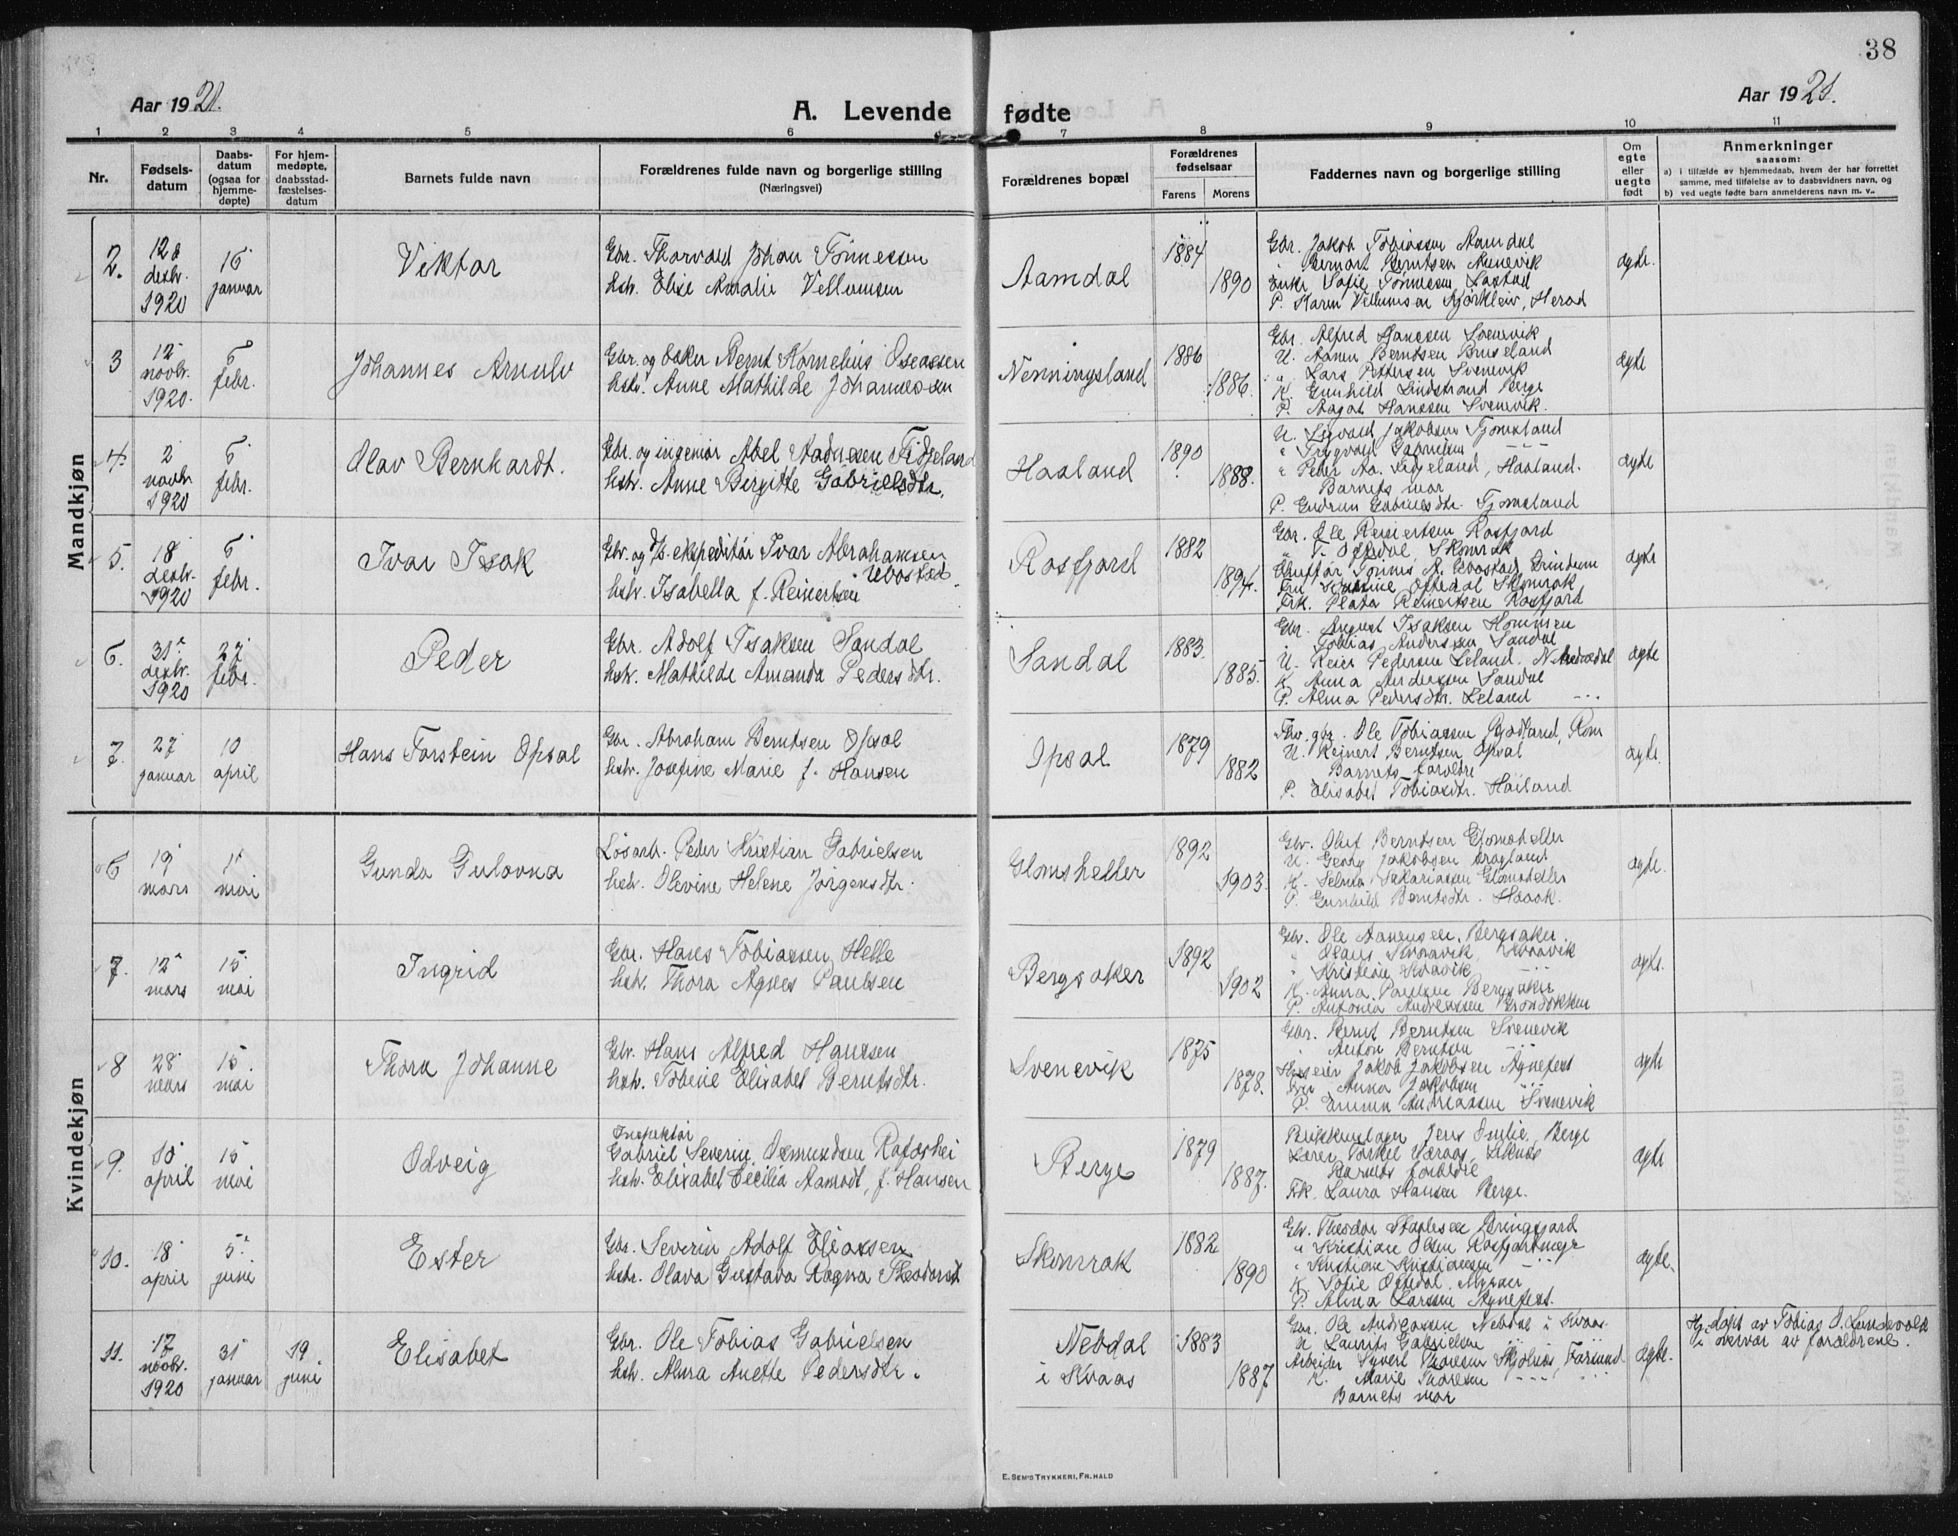 38
Aar 1921.
A. Levende fødte
Aar 1921.
1 2 3 4 5 6 7 8 9 10 11
Nr.
Fødsels-
datum
Daabs-
datum
(ogsaa for
hjemme-
døpte)
For hjem-
medøpte,
daabsstad-
fæstelses-
datum
Barnets fulde navn
Forældrenes fulde navn og borgerlige stilling
(Næringsvei)
Forældrenes bopæl
Forældrenes
fødselsaar
Farens Morens
Faddernes navn og borgerlige stilling
Om
egte
eller
uegte
født
Anmerkninger
saasom:
a) i tilfælde av hjemmedaab, hvem der har forrettet
samme, med tilføielse av to daabsvidners navn, og
b) ved uegte fødte barn anmelderens navn m. v..
Mandkjøn
2.
desbr.
1920
januar
Viktor
Gbr. Thorvald Johan Tönnessen
hstr. Elise Amalie Vellumsen
Aamdal
1884
1890
Gbr. Jakob Tobiassen Aamdal
Enke Sofie Tönnessen
P. Karen Vellumsen Herad
ægte.
3
12
novbr.
1920.
6
febr.
Johannes Arnulv
Gbr. og baker Bernt Kornelius Oseassen
hstr. Anne Mathilde Johannessen
Nenningsland
1886
1886.
Gbr. Alfred Hanssen Svenevik
U. Berntsen Bruseland
" Lars Pettersen Svenevik
K. Gunhild Lindstrand Berge
P. Aagot Hanssen Svenevik.
ægte
4.
2
novbr.
1920
6
febr.
Olav Bernhardt.
Gbr. og ingeniør Abel Aadnesen Fidjeland
hstr. Anne Bergitte Gabrielsdtr.
Haaland
1890
1888.
U. Sigvald Jakobsen Tjomsland
" Trygvald Gabrielsen
" Peder Aa. Fidjeland, Haaland.
Barnets mor
P. Gudrun Gabrielsdtr. Tjomsland
ægte
5.
18
desbr.
1920
6
febr.
Ivar Isak
Gbr. og D/S. ekspeditør Ivar Abrahamsen
Ubostad
hstr. Isabella f. Reinertsen
Rosfjord
1882
1894.
Gbr. Ole Reinertsen Rosfjord
Oftedal, Skomrak
Tönnes A. Ubostad
Oftedal Skomrak
Frk. Reinertsen Rosfjord
ægte
6.
31
desbr.
1920
27
febr.
Peder
Gbr. Adolf Isaksen Sandal
hstr. Mathilde Amanda Pedersdtr.
Sandal
1883.
1885.
Gbr. August Isaksen
" Tobias Anderssen Sandal
U. Reier Pedersen Leland.
K. Anna Andreassen Sandal
P. Alma Pedersdtr. Leland
ægte
7.
27
januar
10
april
Hans Torstein Opsal
Gbr. Abraham Berntsen Opsal
hstr. Josefine Marie f. Hansen
Opsal
1879
1882
gbr. Ole Tobiassen
U. Reinert Berntsen Opsal
Barnets forældre
P. Elisabet Tobiasdtr. Haaland
ægte.
Kvindekjøn
6
19
mars
1
mai
Gunda Gulovna
Løsarb. Peder Kristian Gabrielsen
hstr. Olevine Helene Jörgensdtr.
Glomsheller
1892
1903.
Gbr. Oluf Berntsen Glomsheller
U. Georg Jakobsen
K. Selma Sakariassen Glomsheller
P. Gunhild Berntsdtr.
ægte.
7.
12
mars
15
mai
Ingrid
Gbr. Hans Tobiassen Helle
hstr. Thora Agnes Paulsen
Bergsaker
1892
1902
Gbr. Ole Aanensen, Bergsaker
" Olaus
" Kristian
K. Anna Paulsen Bergsaker
P. Antonia Andreassen
ægte.
8
28
mars
15.
mai
Thora Johanne
Gbr. Hans Alfred Hanssen
hstr. Tobine Elisabet Berntsdtr.
Svenevik
1875
1878.
Gbr. Bernt Berntsen Svenevik
" Anton Berntsen
Jakob Jakobsen Agnefest
Anna Jakobsen
P. Emma Andreassen Svenevik
ægte
9.
10
april
15
mai
Odveig
Inspektør
Gabriel Severin Osmundsen Rafoshei
hstr. Elisabet Cecilia Aamodt, f. Hansen
Berge
1879
1887.
Jens Berge
Lærer Torkel
Barnets forældre
Frk. Laura Hansen Berge.
ægte
10.
18
april
5
juni
Ester
Gbr. Severin Adolf Eliassen
hstr. Olava Gustava Ragna Theodorsdtr
Skomrak
1882
1890
Gbr. Theodor Bringsjord
" Kristian Olsen
" Kristian Kristiansen
K. Sofie Oftedal
P. Alma Larssen Agnefest.
ægte.
11.
17
novbr.
1920
31
januar
19
juni
Elisabet
Gbr. Ole Tobias Gabrielsen
hstr. Alma Anette Pedersdtr.
Nebdal
i Kvaas
1883
1887
Gbr. Ole Andreassen Nebdal i Kvaas
U Laurits Gabrielsen
Arbeider Syvert Thoresen Farsund
K. Marie Thoresen
Barnets mor
ægte.
Hj. døpt av Tobias O. Lundevold
i overvær av forældrene.
E. SEM'S TRYKKERI, FR. HALD